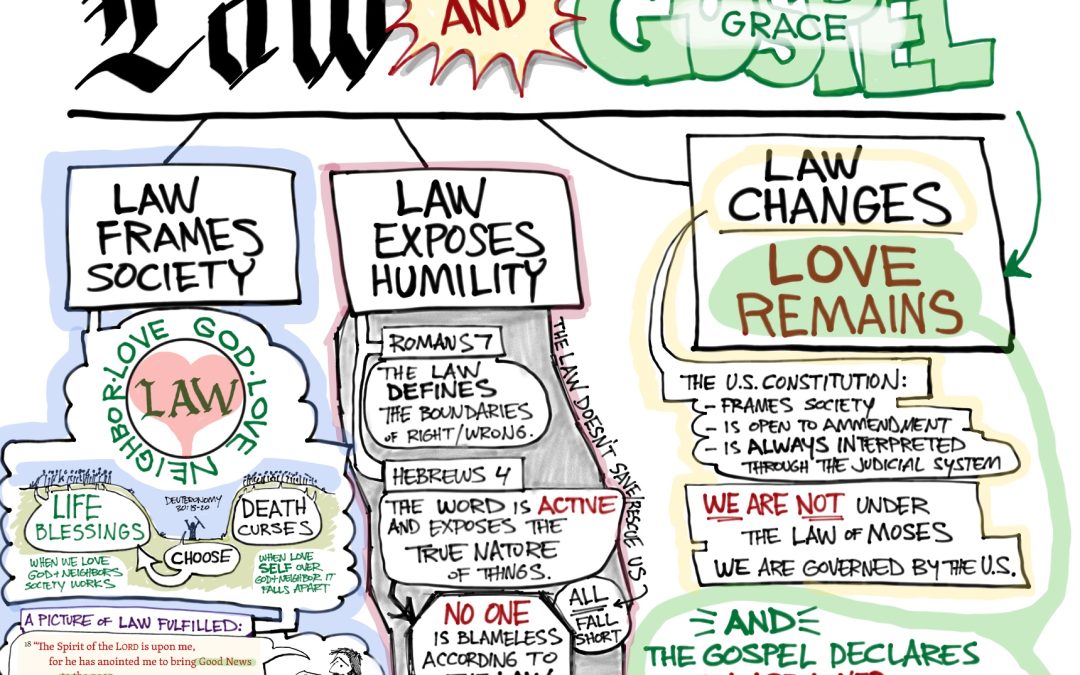 Law
AND
GOSPEL
GRACE
LAW
FRAMES
SOCIETY
LOVE GOD • LOVE NEIGHBOR •
LAW
LIFE
BLESSINGS
DEUTERONOMY
30:15-20
DEATH
CURSES
CHOOSE
WHEN WE LOVE
GOD + NEIGHBORS
SOCIETY WORKS
WHEN LOVE
SELF OVER
GOD + NEIGHBOR IT
FALLS APART
A PICTURE OF LAW FULFILLED:
18 "The Spirit of the LORD is upon me,
for he has anointed me to bring Good News
LAW
EXPOSES
HUMILITY
ROMANS 7
THE LAW
DEFINES
THE BOUNDARIES
OF RIGHT/WRONG.
HEBREWS 4
THE WORD IS ACTIVE
AND EXPOSES THE
TRUE NATURE
OF THINGS.
THE LAW DOESN'T SAVE/RESCUE US
NO ONE
IS BLAMELESS
ACCORDING TO
THE LAW
ALL
FALL
SHORT
LAW
CHANGES
LOVE
REMAINS
THE U.S. CONSTITUTION:
- FRAMES SOCIETY
- IS OPEN TO AMMENDMENT
- IS ALWAYS INTERPRETED
THROUGH THE JUDICIAL SYSTEM
WE ARE NOT UNDER
THE LAW OF MOSES
WE ARE GOVERNED BY THE U.S.
AND
THE GOSPEL DECLARES